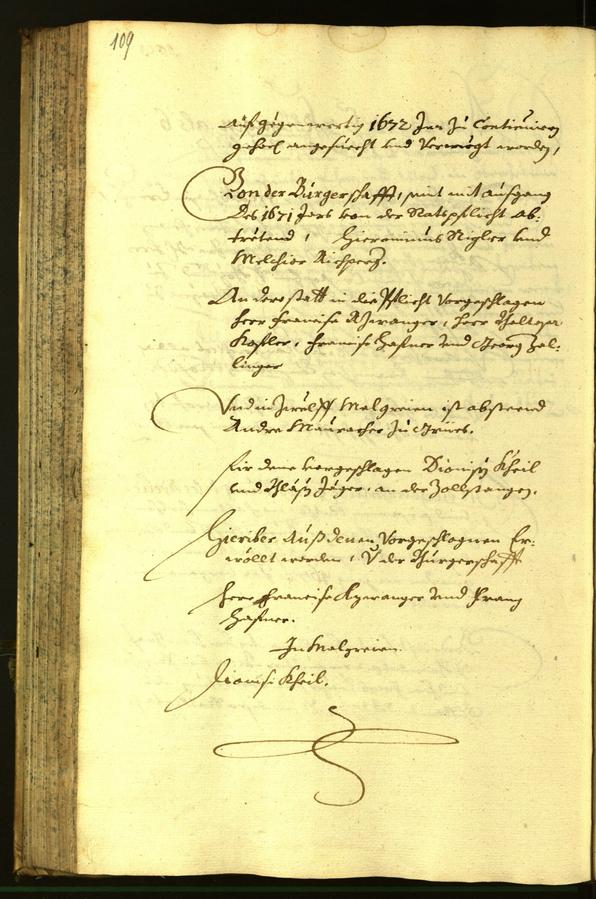 109
Auf gegenwertig 1672 Jar zu Continuiern
gehorl. angesuecht und verwögt worden,
Von der Bürgerschafft, seint mit aufgang
des 1671 Jars von der Ratspflicht ab:
trettend, Hieronimus Rigler und
Melchior Aichperg.
An dero statt in die Pflicht vorgeschlagen
Herr Francisc Azwanger, Herr Balthasar
Kofler, Francisc Hafner und Georg Zal:
linger
Und in zwelff Malgreien ist abstend
Andre Mauracher zu Gries.
Für dene vorgeschlagen Dionisy Kheil
und Bläsy Jäger, an der Zollstangen.
Hieriber auß denen vorgeschlagnen Er:
wöllt worden, V der Bürgerschafft
Herr Francisc Azwanger und Franz
Hafner.
In Malgreien.
Dionisi Kheil.